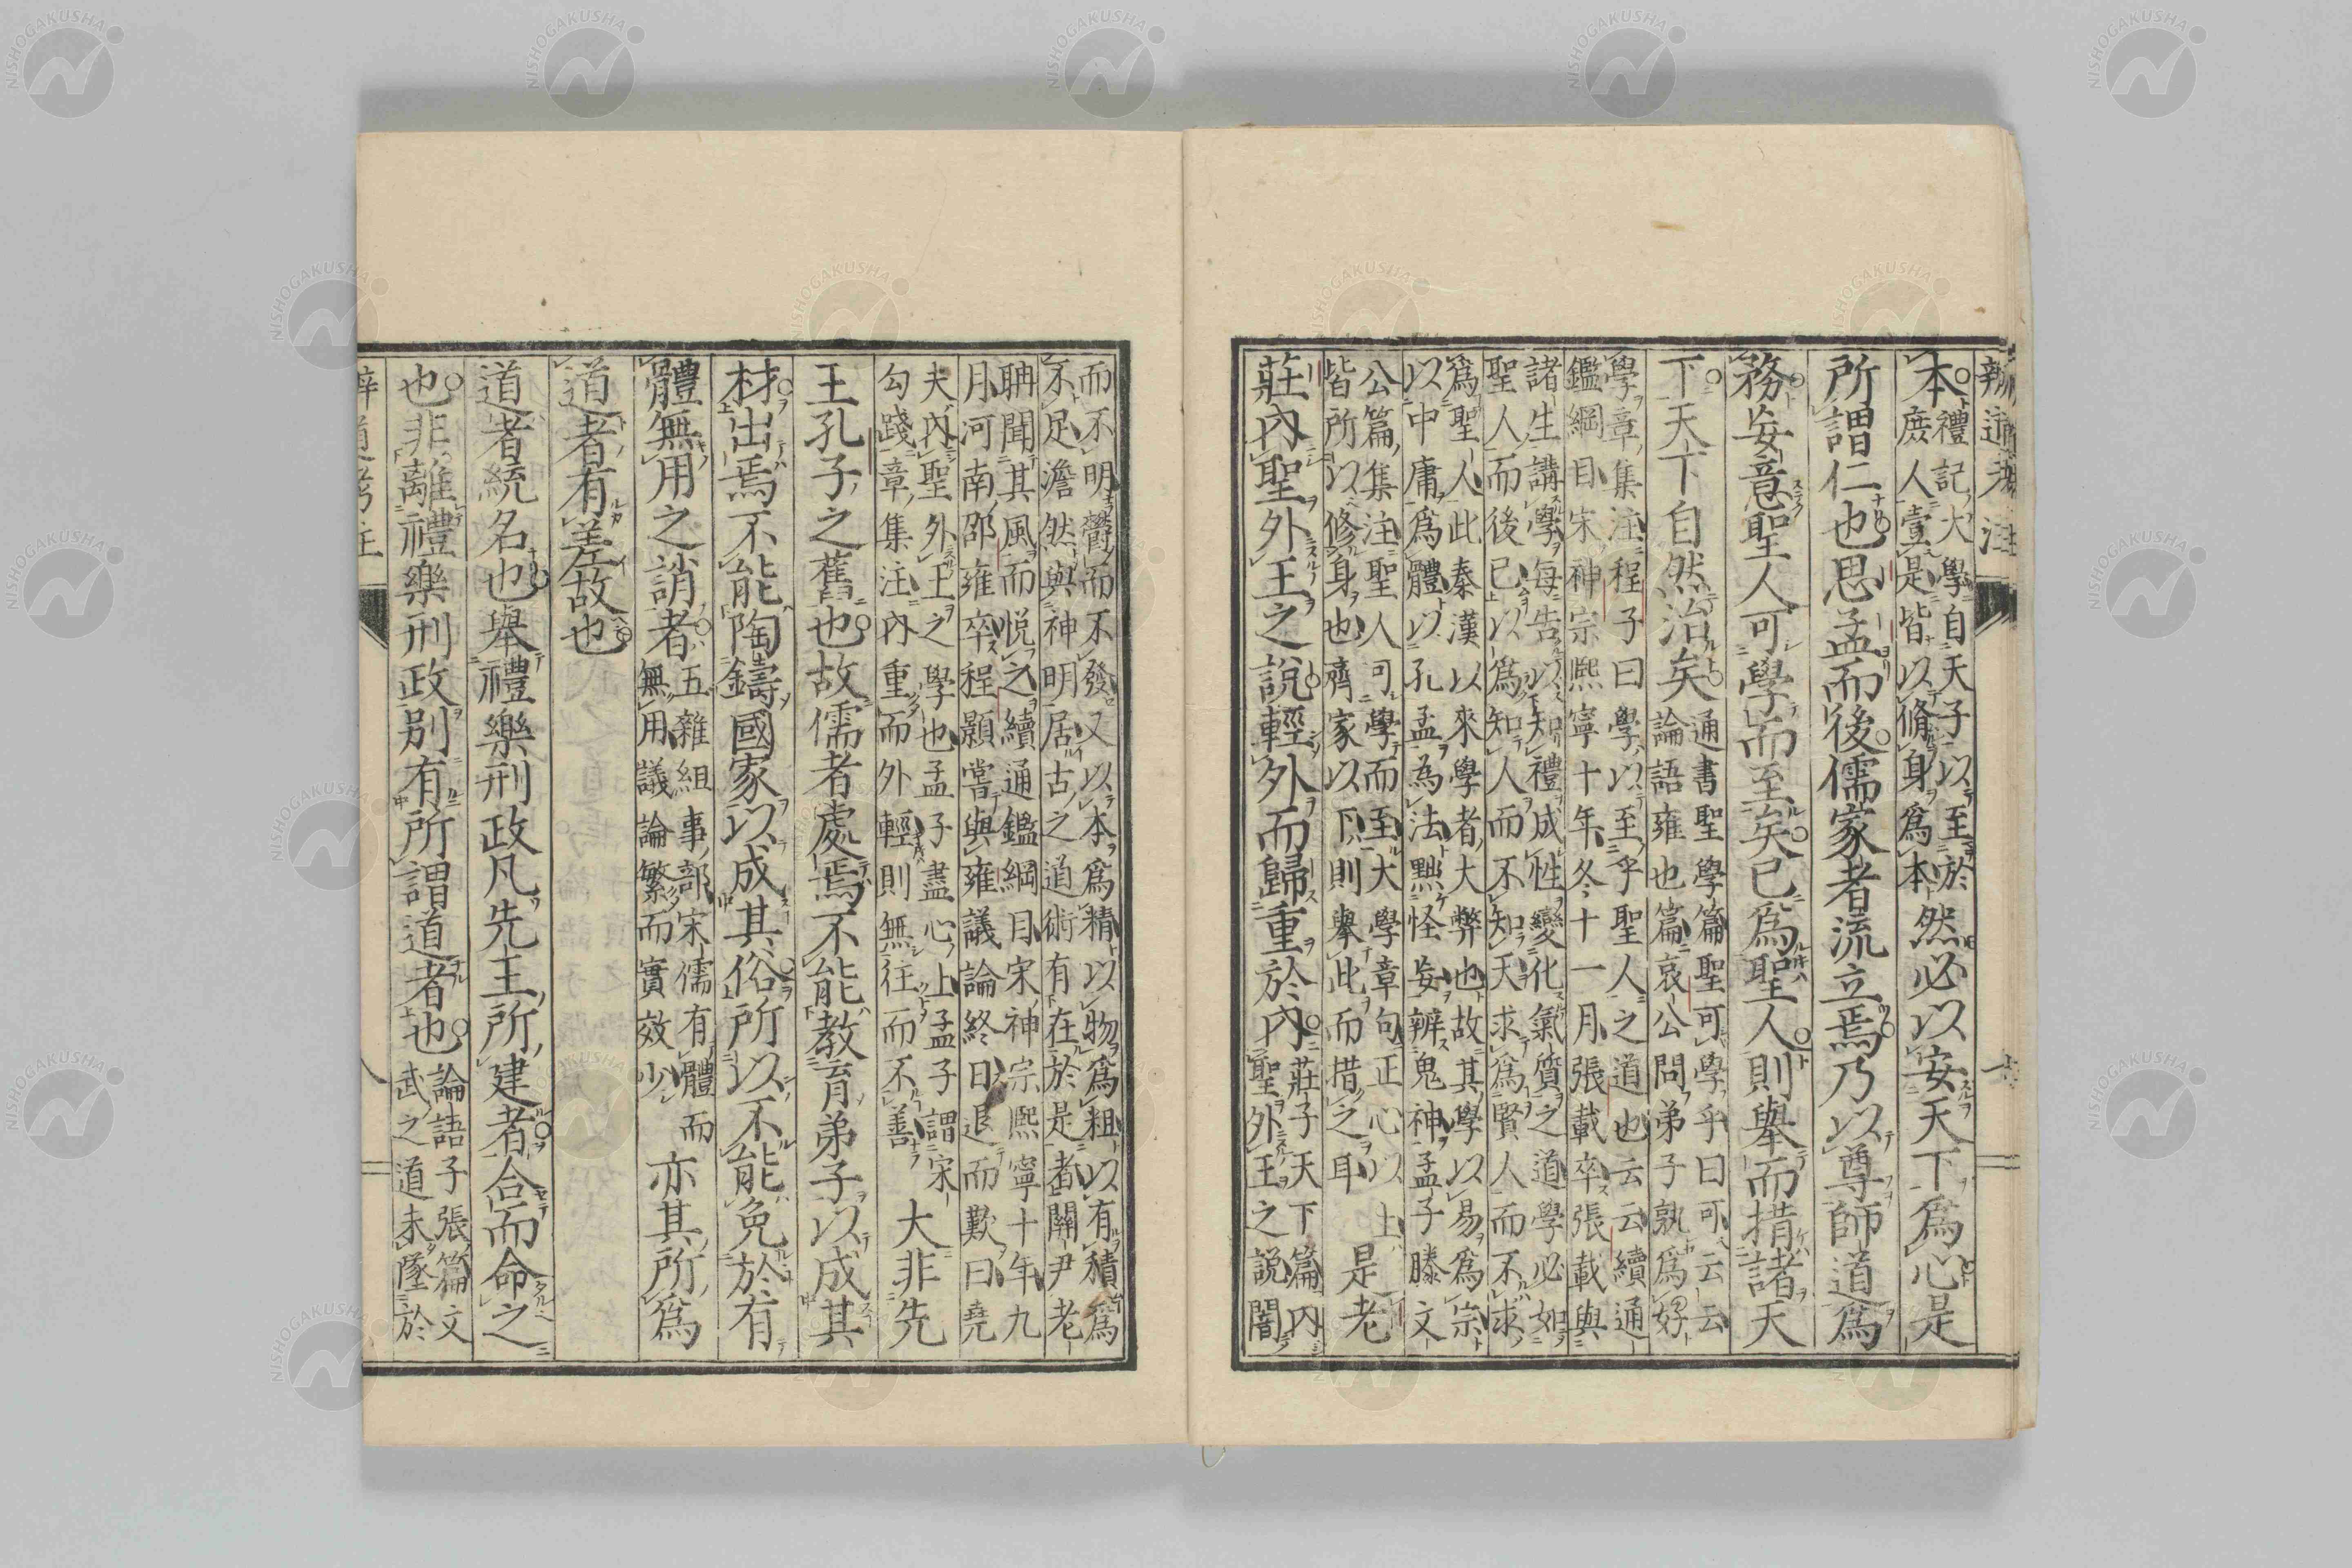 辨道考注
本
禮記大學自天子以至於
庶人壹是皆以脩身爲本
然必以安天下爲心是
所謂仁也思孟而後儒家者流立焉乃以尊師道爲
務妄意聖人可學而至矣已爲聖人則舉而措諸天
下天下自然治矣
通書聖學篇聖可學乎曰可云云
論語雍也篇哀公問弟子孰爲好
學章集注程子曰學以至乎聖人之道也云云續通
鑑綱目宋神宗熙寧十年冬十一月張載卒張載與
諸生講學每告以知禮成性變化氣質之道學必如
聖人而後已以爲知人而不知天求爲賢人而不求
爲聖人此秦漢以來學者大弊也故其學以易爲宗
以中庸爲體以孔孟為法黜怪妄辨鬼神孟子滕文
公篇集注聖人可學而至大學章句正心以上
皆所以修身也齊家以下則舉此而措之耳
是老
莊內聖外王之說輕外而歸重於內
莊子天下篇内
聖外王之説闇
而不明鬱而不發又以本爲精以物爲粗以有積爲
不足澹然與神明居古之道術有在於是者關尹老
聃聞其風而悦之續通鑑綱目宋神宗熙寧十年九
月河南邵雍卒程顥嘗與雍議論終日退而歎曰堯
夫內聖外王之學也孟子盡心上孟子謂宋
勾踐章集注內重而外輕則無往而不善
大非先
王孔子之舊也故儒者處焉不能教育弟子以成其
材出焉不能陶鑄國家以成其俗所以不能免於有
體無用之誚者
五雜組事部宋儒有體而
無用議論繁而實效少
亦其所爲
道者有差故也
道者統名也舉禮樂刑政凡先王所建者合而命之
也非離禮樂刑政別有所謂道者也
論語子張篇文
武之道未墜於
辨道考注
NISHOGAKUSHA